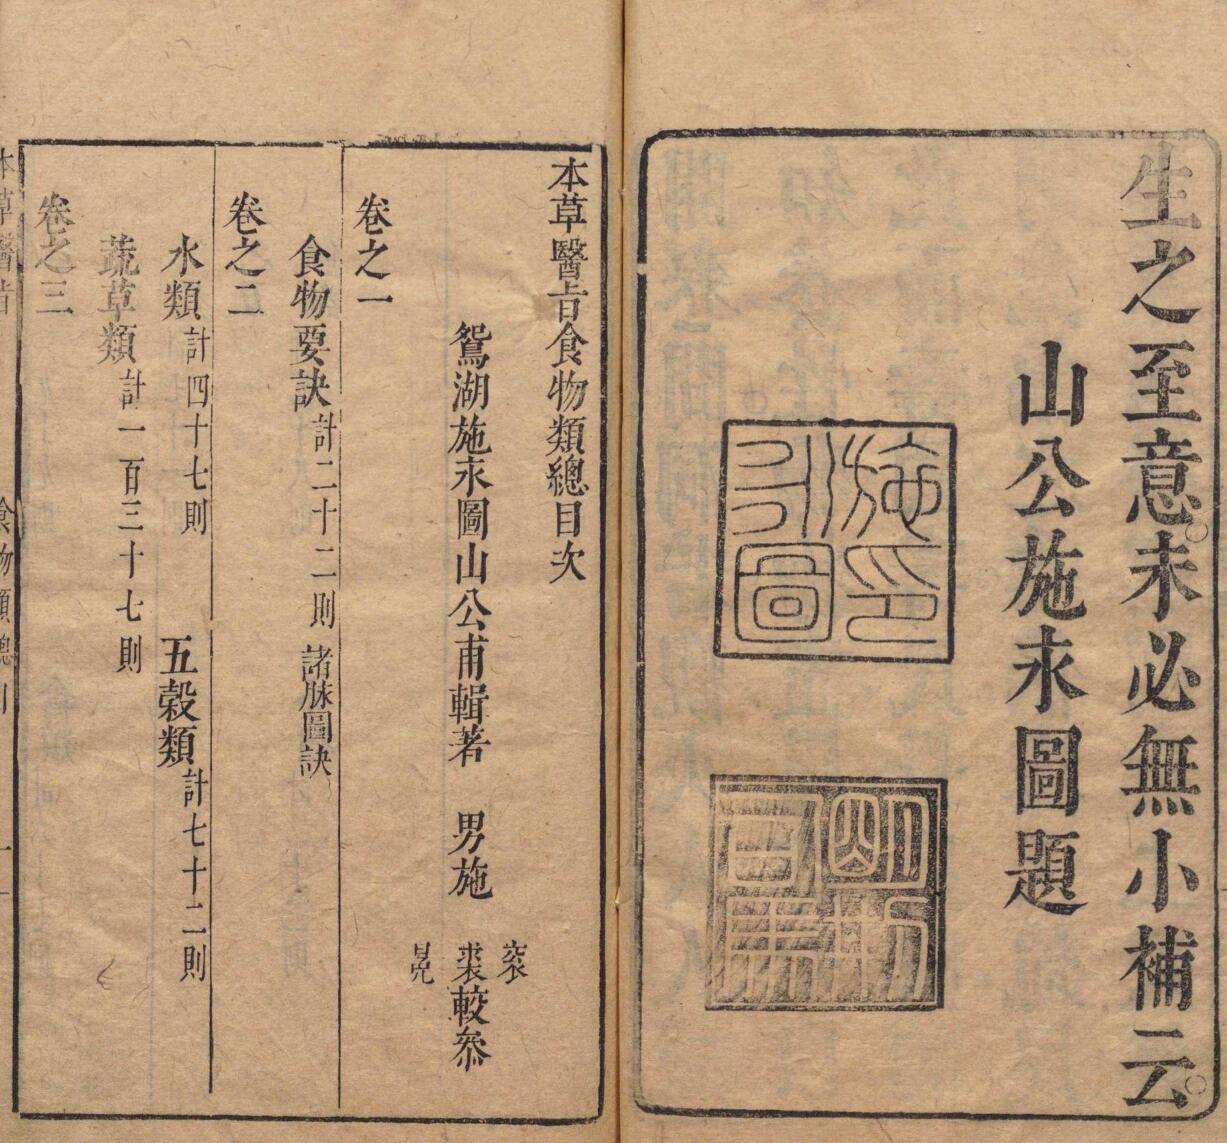 生之至意未必無小補云
山公施永圖題
施永圖印
本草醫旨食物類總目次
鴛湖施永圖山公甫輯著　男施　袞裘晃較叅
卷之一
食物要訣計二十二則　諸脉圖訣
卷之二
水類計四十七則　五穀類計七十二則
蔬草類計一百三十七則
卷之三
本草醫旨　食物類總目　一